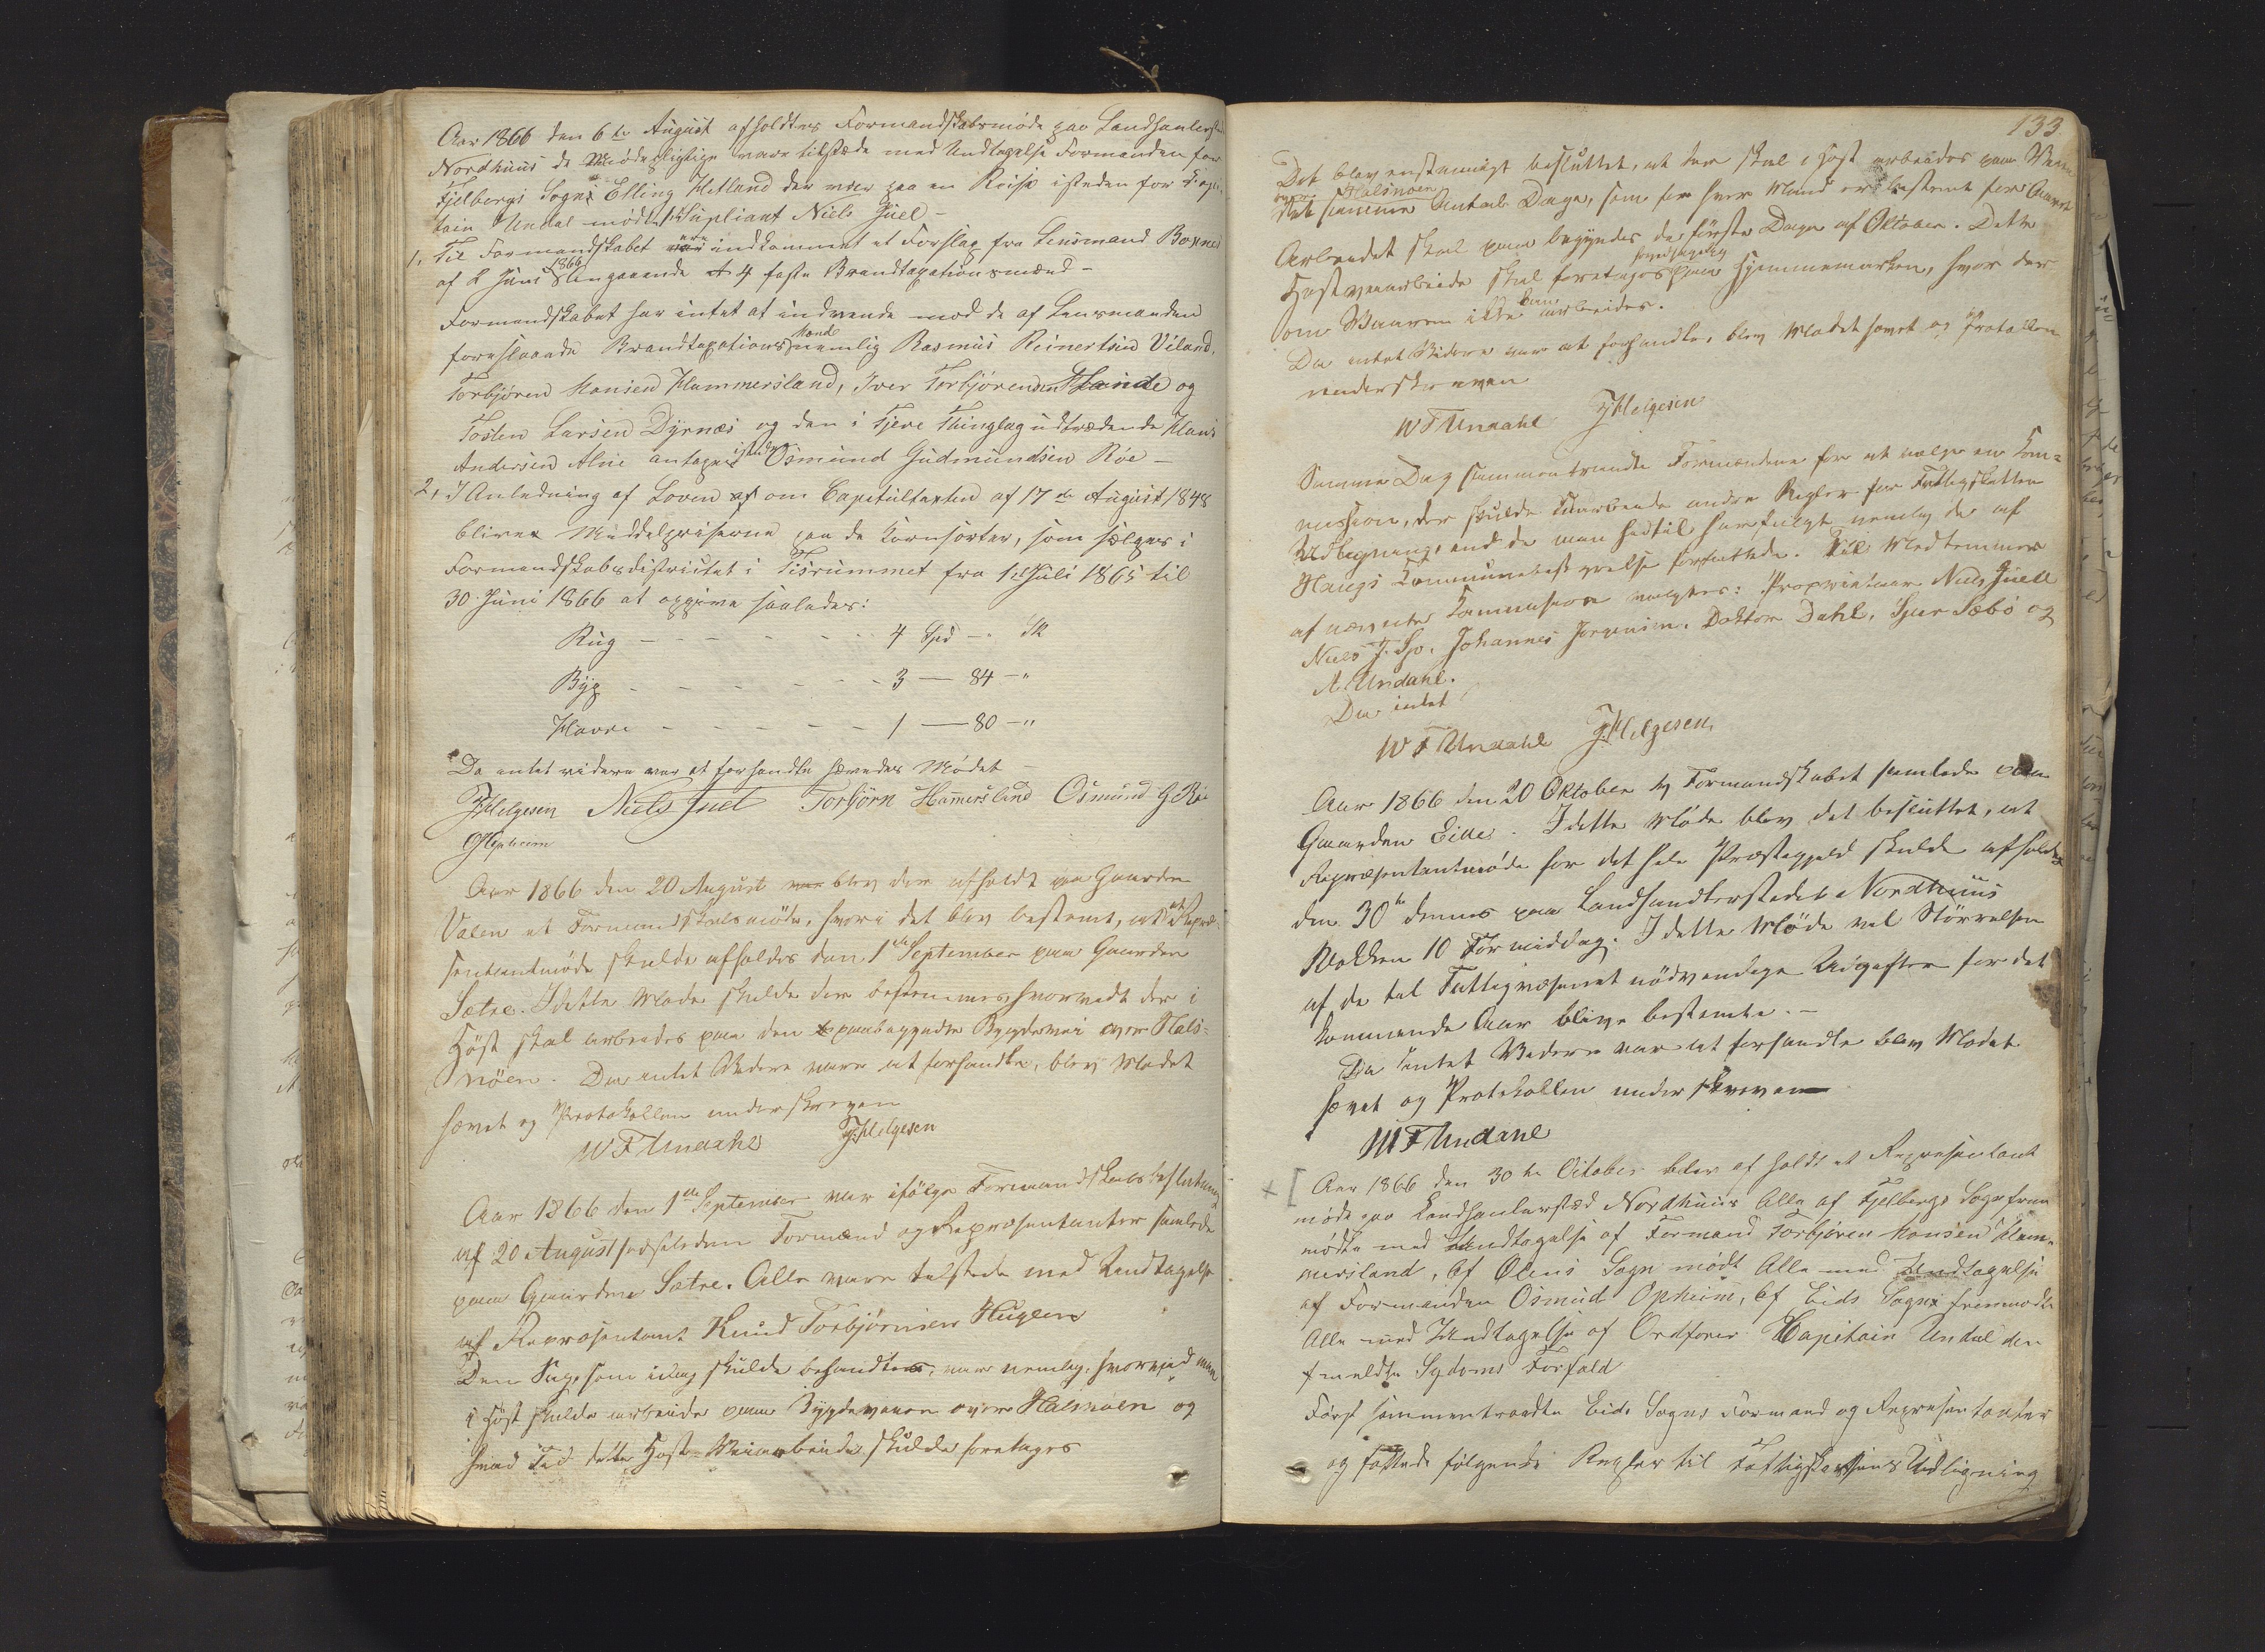 Aar 1866 den 6te August afholdtes Formandskabsmøde paa Landhandlerstæd
Nordhuus de Mødepligtige vare tilstæde med Undtagelse Formanden for
Fjelbergs Sogn Elling Hetland der var paa en Reise isteden for Capi-
tain Undal mødte 1ste Supliant Niels Juel -
1, Til Formandskabet var indkommet et Forslag fra Lensmand Boxnes
af 2 Juni 1866 Angaaende 4 faste Brandtaxationsmænd -
Formandskabet har intet at indvende mod de af Lensmanden
foreslaaede Brandtaxationsmænd nemlig Rasmus Reinertsen Viland,
Torbjøren Monsen Hammersland, Iver Torbjørensen Hande og
Tosten Larsen Dyrnæs og den i Fjere Thinglag udtrædende Hans
Andersen Alne antages isteden Osmund Gudmundsen Røe -
2, I Anledning af Loven om Capitultaxten af 17de August 1848
bliver Middelpriserne paa de Kornsorter, som sælges i
Formandskabsdistrictet i Tisrummet fra 1ste Juli 1865 til
30 Juni 1866 at opgive saaledes:
Rug - - - - - - 4 Spd - " Sk
Byg - - - - - - 3 — 84 - "
Havre - - - - - - 1 — 80 - "
Da intet videre var at forhandle hævedes Mødet -
J Helgesen Niels Juel Torbjörn Hamersland Osmund G Röe
O Opheim
Aar 1866 den 20 August blev der afholdt paa Gaarden
Valen et Formandskabsmöde, hvori det blev bestemt, at et Repræ-
sentantmöde skulde afholdes den 1ste September paa Gaarden
Sætre. I dette Möde skulde der bestemmes, hvorvidt der i
Höst skal arbeides paa den paabegyndte Bygdevei over Hals-
nöen. Da intet Videre var at forhandle, blev Mødet
hævet og Protokollen underskreven
W F Undahl J. Helgesen
Aar 1866 den 1ste September var ifölge Formandskabsbeslutning
af 20 August sidstleden Formænd og Repræsentanter samlede
paa Gaarden Sætre. Alle vare tilstede med Undtagelse
af Repræsentant Knud Torbjörnsen Huglen
Den Sag, som idag skulde behandles, var nemlig, hvorvidt man
i Höst skulde arbeide paa Bygdeveien over Halsnöen og
hvad Tid dette Höst-Veiarbeide skulde foretages
133.
Det blev enstemmigt besluttet, at der skal i Höst arbeides paa Veien
over Halsnöen
det samme Antal Dage, som for hver Mand er bestemt for Aaret
Arbeidet skal paabegyndes de förste Dage af Oktober. Dette
Höstveiarbeide skal foretages fornemmelig paa Hjemmemarken, hvor der
om Vaaren ikke kan arbeides.
Da intet Videre var at forhandle, blev Mødet hævet og Protokollen
underskreven
W F Undahl J Helgesen
Samme Dag sammentraadte Formændene for at vælge en Kom-
mission, der skulde udarbeide andre Regler for Fattigskattens
Udligning, end de man hidtil har fulgt nemlig de af
Haugs Kommunebestyrelse forfattede. Til Medlemmer
af nævnte Kommission valgtes: Proprietær Niels Juell
Niels J. Spo. Johannes Jorgensen. Doktor Dahl. Sjur Sæbö og
A. Undahl.
Da intet
W F Undahl J. Helgesen.
Aar 1866 den 20 Oktober var Formandskabet samlede paa
Gaarden Eide. I dette Möde blev det besluttet, at
Repræsentantmöde for det hele Præstegjeld skulde afholdes
den 30te dennes paa Landhandlerstedet Nordhuus
Klokken 10 Formiddag. I dette Möde vil Störrelsen
af de til Fattigvæsenet nödvendige Udgifter for det
kommende Aar blive bestemte. -
Da intet Videre var at forhandle blev Mødet
hævet og Protokollen underskreven
W F Undahl
Aar 1866 den 30te October blev afholdt et Representant
møde paa Landhandlerstæd Nordhuus Alle af Fjelbergs Sogn frem
mødte med Undtagelse af Formand Torbjøren Monsen Ham-
mersland, Af Ølens Sogn mødte Alle med Undtagelse
af Formanden Osmund Opheim, Af Eids Sogn fremmødte
Alle med Undtagelse af Ordfører Capitain Undal den
Først sammentraadte Eids Sogns Formænd og Representanter
og fattede følgende Regler til Fattigskattens Udligning